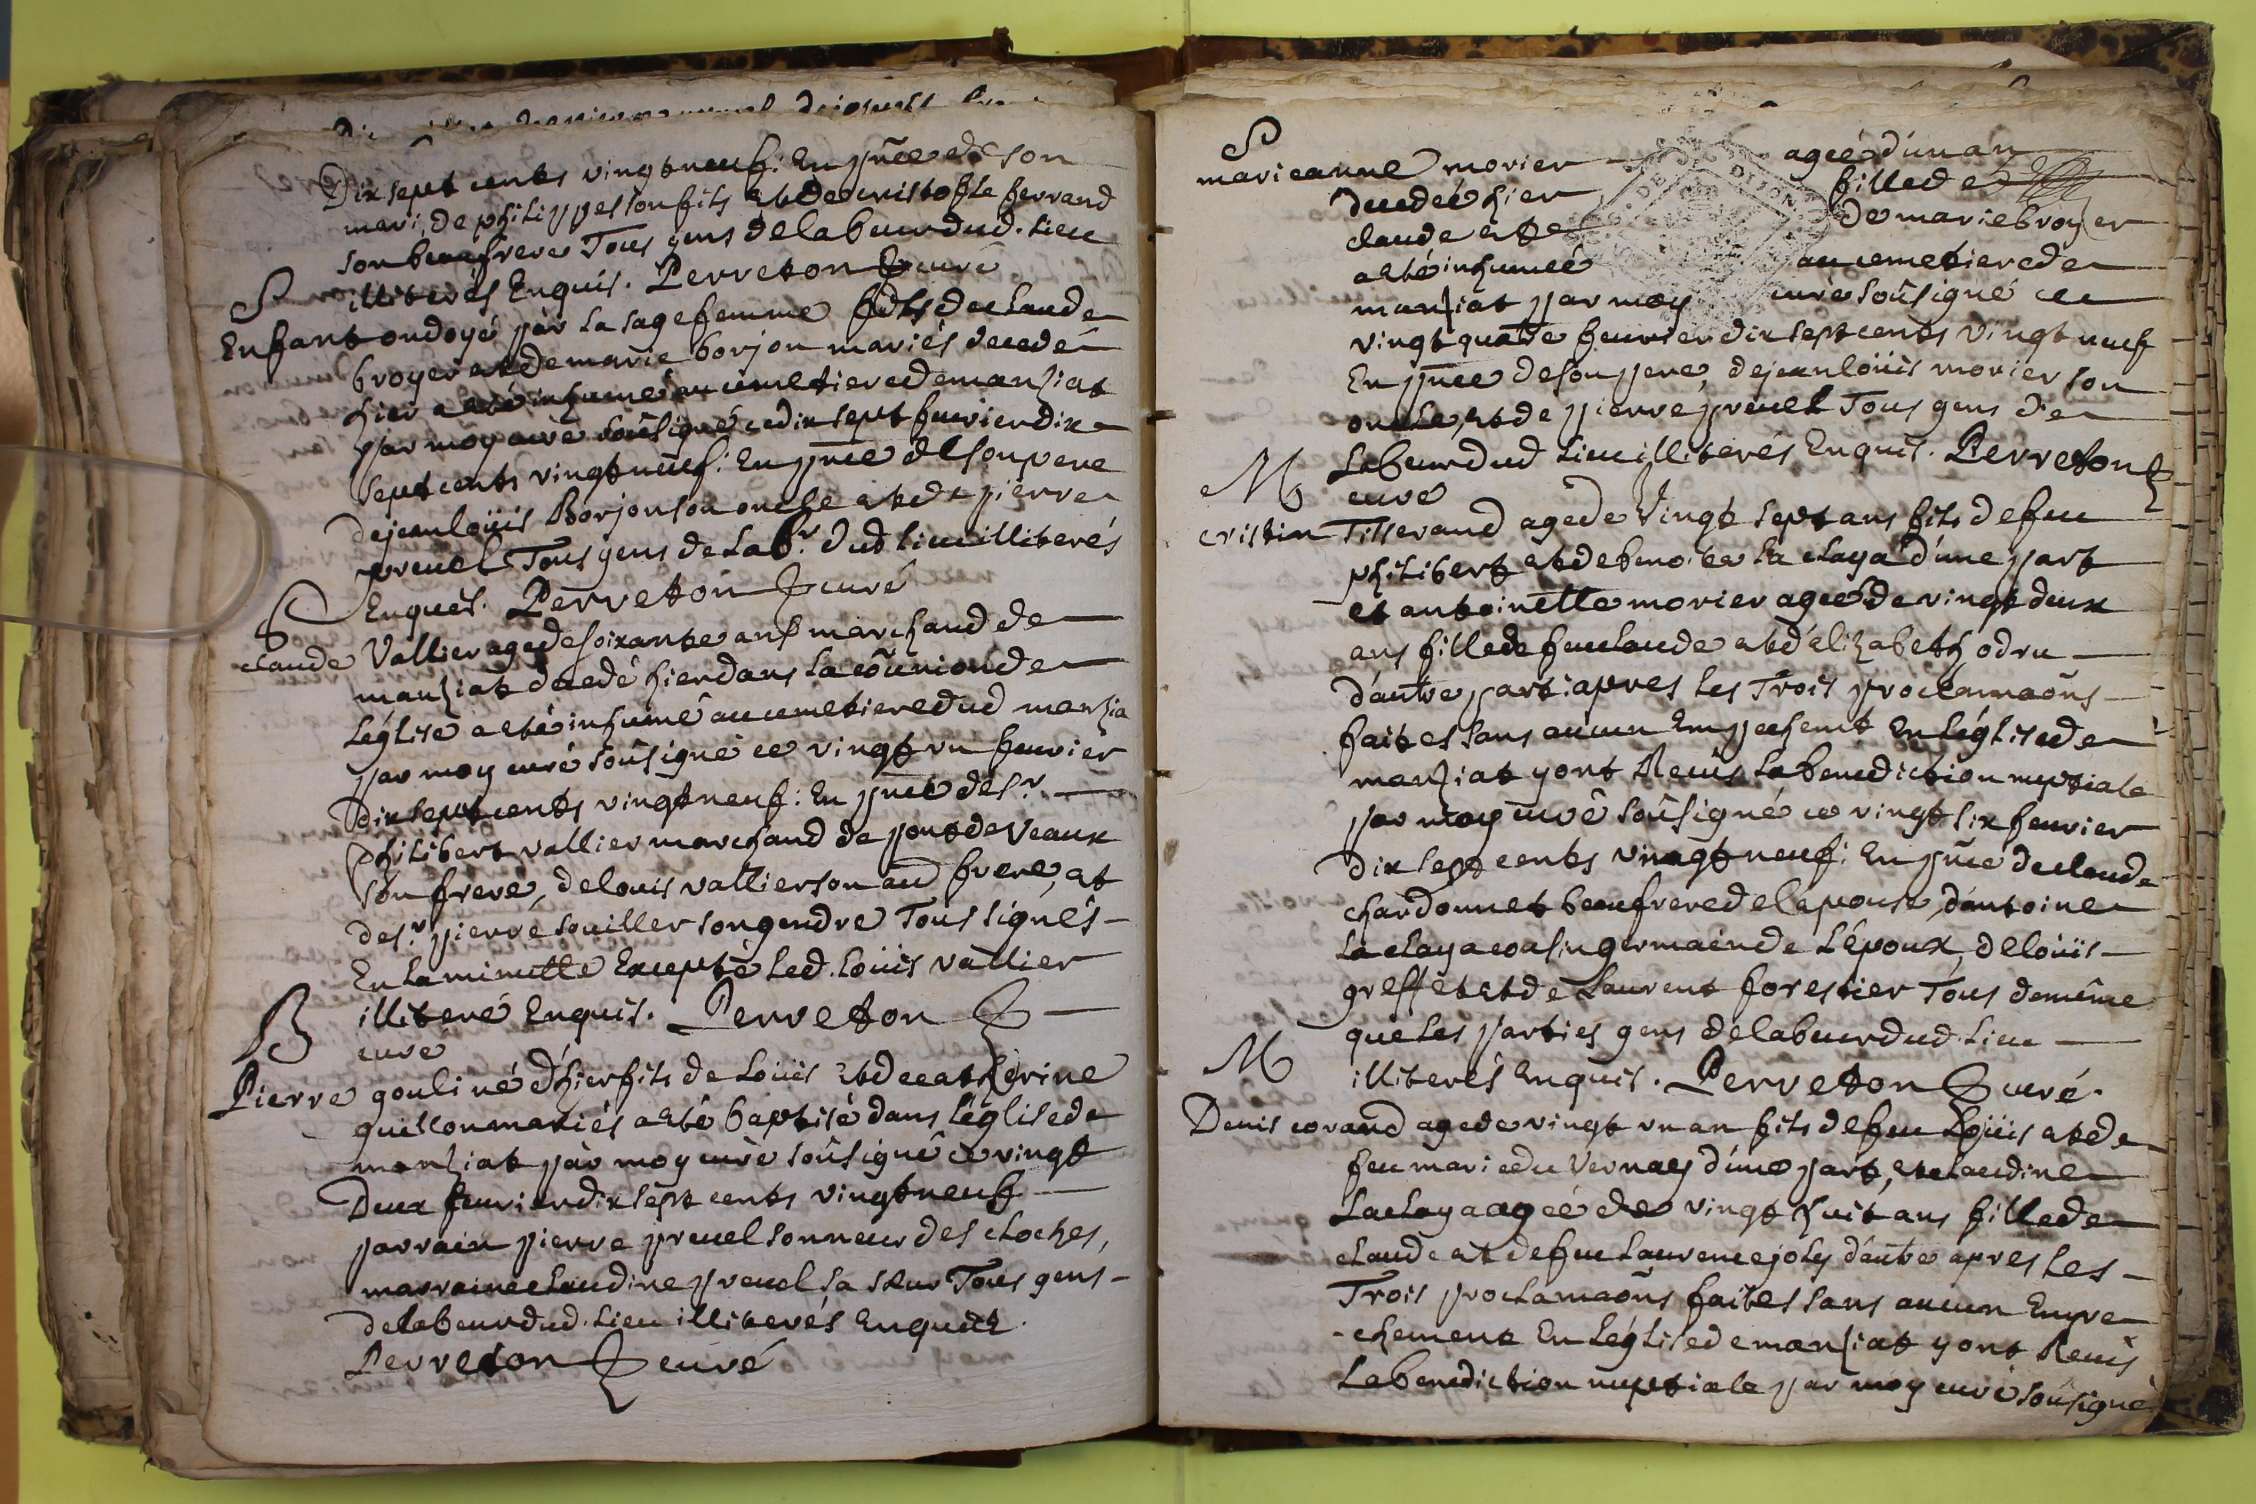 Dix sept cents vingt neuf: En pñce de son
mari, de philippes son fils et de cristofle ferrand
son beaufrere Tous gens de labeur dud. Lieu
illiterés Enquis. Perreton curé
S
Enfant ondoyé par la sagefemme fils de claude
broyer et de marie borjon mariés decedé
hier a eté inhumé au cimetiere de manziat
par moy curé soûsigné ce dix sept feurier dix
sept cents vingt neuf: En pñce de son pere
de jean loüis Borjon son oncle et de pierre
preuel Tous gens de Lab.r dud Lieu illiterés
Enquis. Perreton curé
S
claude Vallier agé de soixante ans marchand de
manziat decedé hier dans la cõunion de
Léglise a eté inhumé au cemetiere dud manzia
par moy curé soûsigné ce vingt vn feurier
Dix sept cents vingt neuf: En pñce de s.r
philibert vallier marchand de pont de veaux
son frere, de louis vallier son aud frere, et
de s.r pierre souiller son gendre Tous signés
En la minutte Excepté Led. Loüis vallier
illiteré Enquis. Perreton
curé
B
Pierre gouli né d'hier fils de Loüis et de catherine
guillon mariés a eté baptisé dans léglise de
manziat par moy curé soûsigné ce vingt
Deux feurier dix sept cents vingt neuf
parrain pierre preuel sonneur des cloches,
marraine claudine preuel sa sœur Tous gens
de labeur dud. Lieu illiterés Enquis.
Perreton curé
S
marieanne morier agée d'un an
decedée hier fille de
claude et de de marie broyer
a eté inhumée au cemetiere de
manziat par moy curé soûsigné ce
vingt quatre feurier dix sept cents vingt neuf
En pñce de son pere, de jean loüis morier son
oncle, et de pierre preuel Tous gens de
Labeur dud Lieu illiterés Enquis. Perreton
curé
M
cristin Tisserand agé de Vingt sept ans fils de feu
philibert et de benoite la claya d'une part
et antoinette morier agée de vingt deux
ans fille de feu claude et d'elizabeth odru
d'autre part apres les Trois proclamaõns
faites sans aucun Empechemt En Léglise de
manziat y ont Receus la benediction nuptiale
par moy curé soûsigné ce vingt six feurier
dix sept cents vingt neuf: En pñce de claude
chardonnet beaufrere de lepouse, d'antoine
La claya cousin germain de L'époux, de loüis
greffet et de Laurent forestier Tous de même
que les parties gens de labeur dud. Lieu
illiterés Enquis. Perreton curé.
M
Denis corand agé de vingt vn an fils de feu Loüis et de
feu marie du Vernay d'une part, et claudine
La claya agée de vingt huit ans fille de
claude et de feu laurence joly d'autre apres les
Trois proclamaõns faites sans aucun Empe
-chement En Léglise de manziat y ont Receus
La benediction nuptiale par moy curé soûsigné